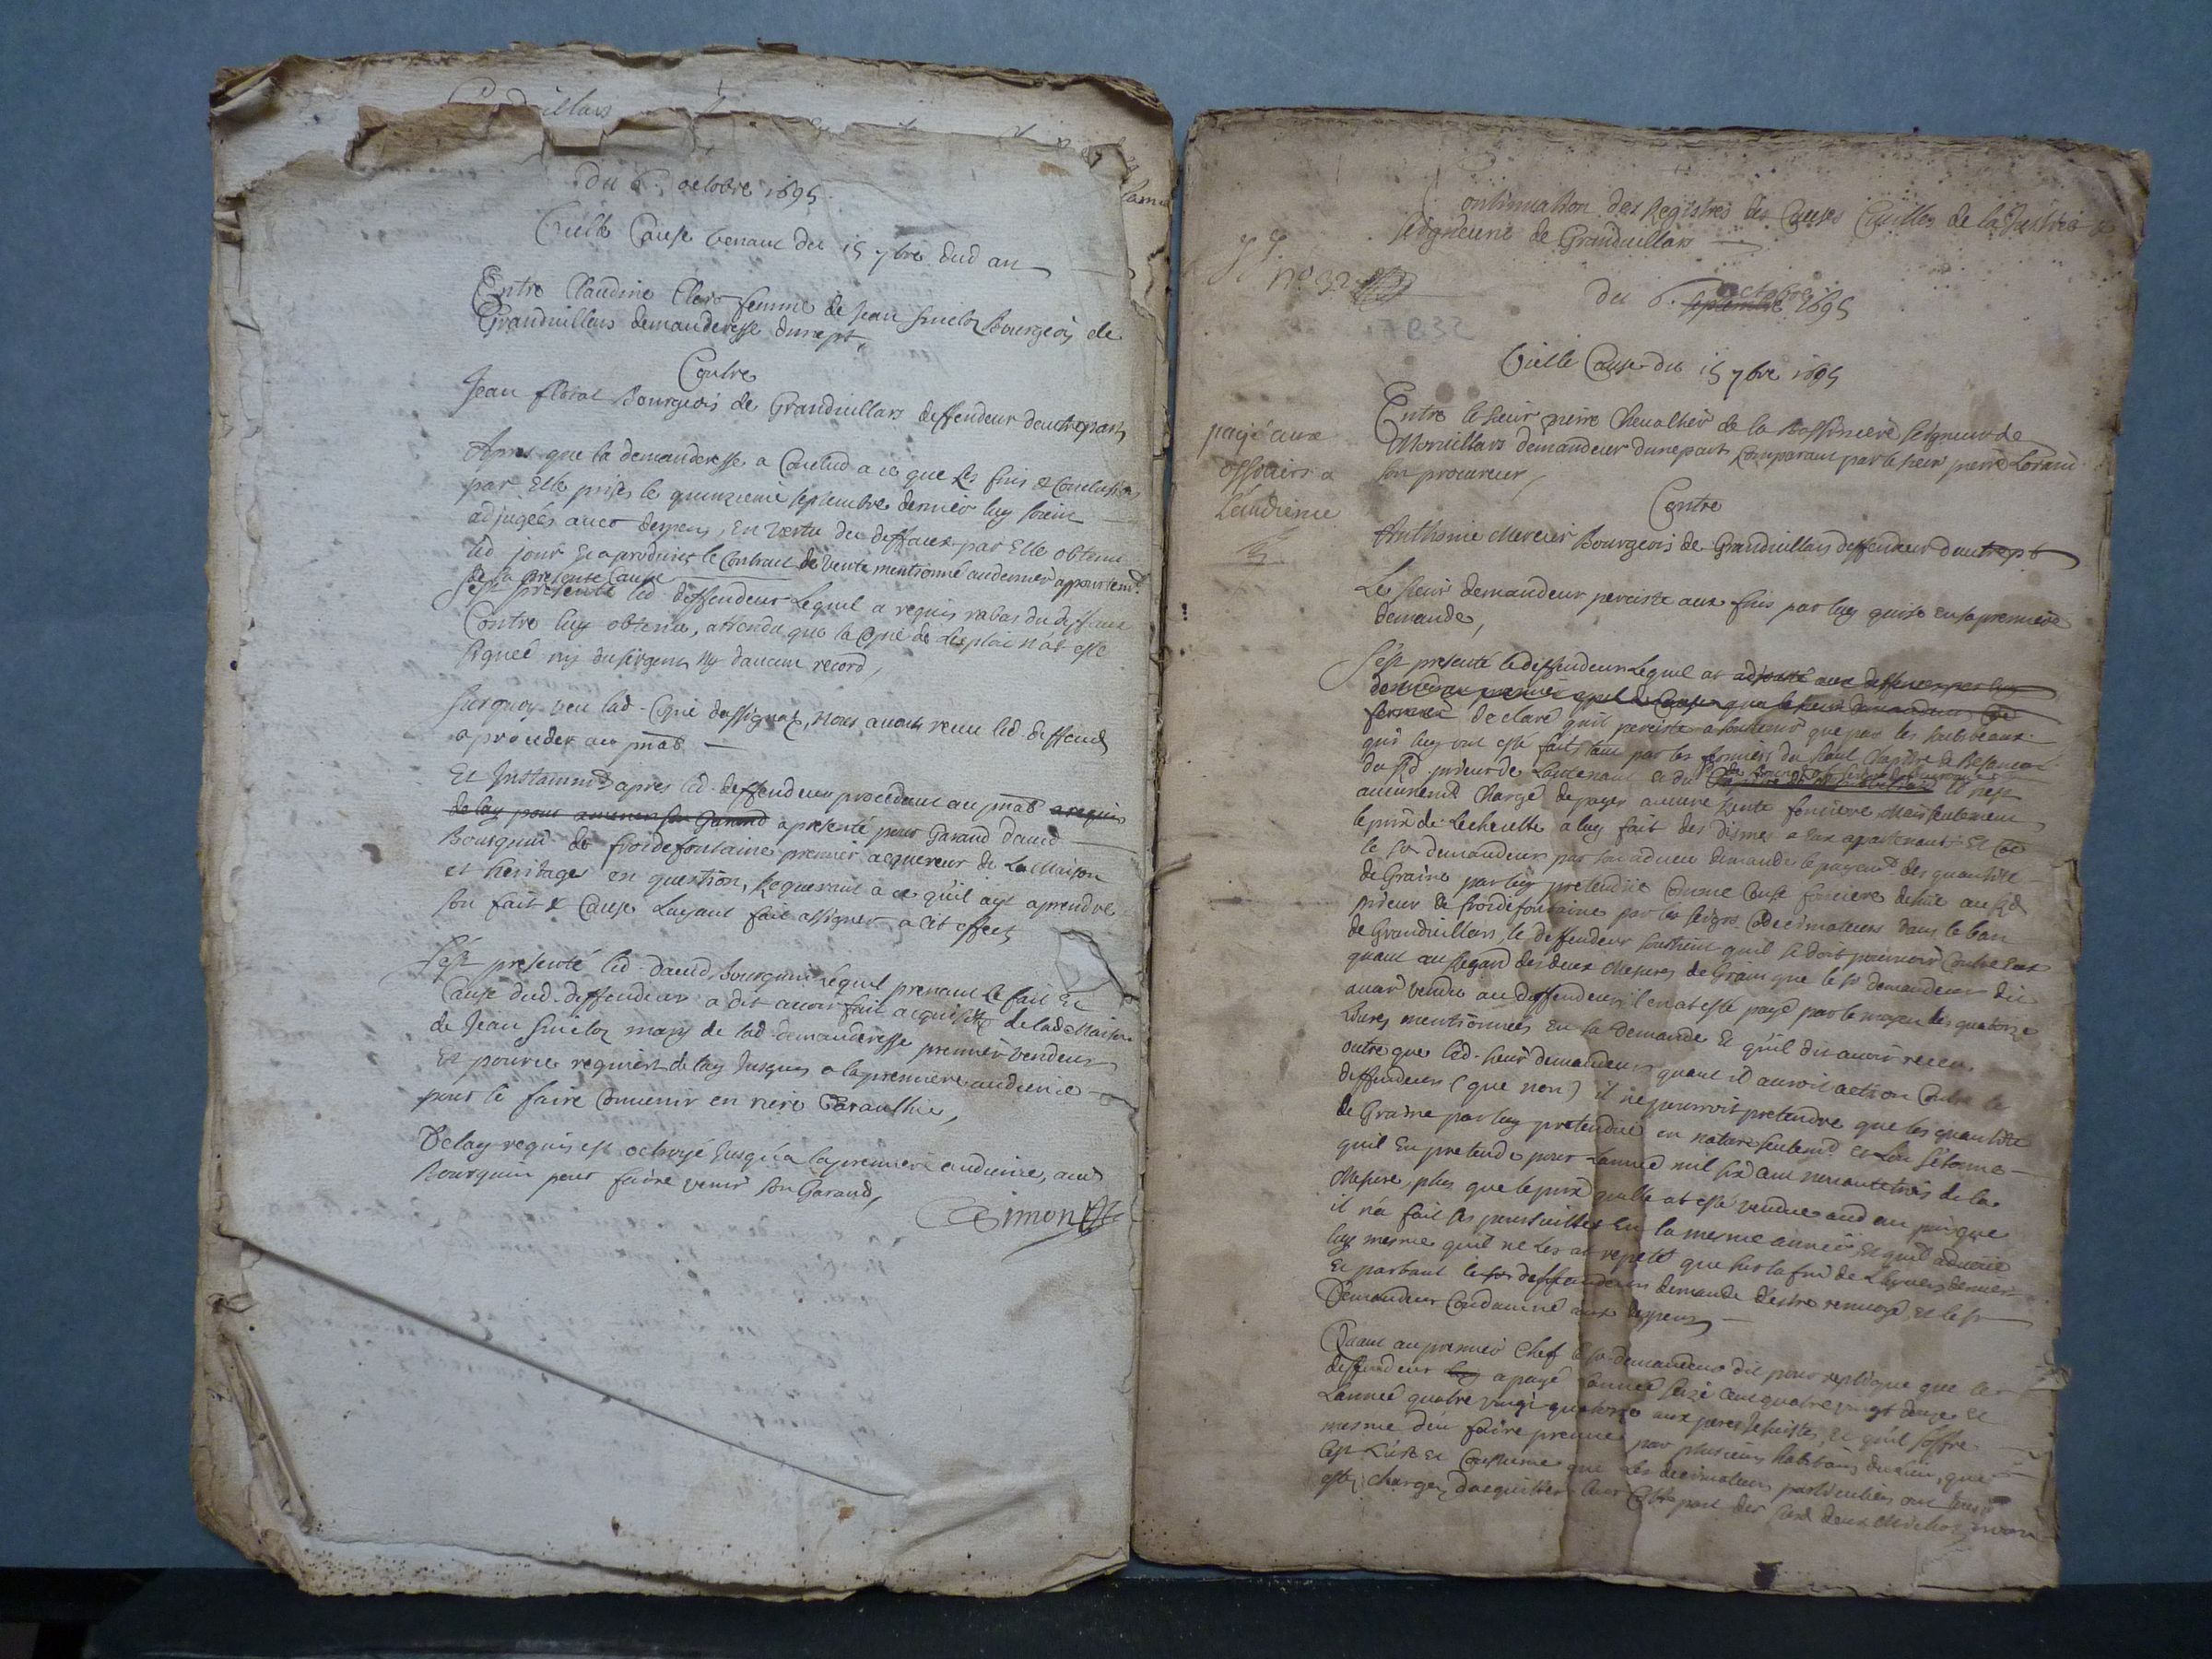 du 6. octobre 1695.
Vielle Cause venant du 15 7bre dud an
Entre Claudine Clerc femme de Jean Bourgeois de
Granduillars demanderesse dunept,
Contre
Jean flotat Bourgeois de Granduillars deffendeur dautrepart,
Apres que la demanderesse a Conclud a ce que les fins & Conclusions
par Elle prises le quinzieme septembre dernier luy soient
adjugées auec despens, En vertu du deffaux par Elle obtenu
led jour Et a produict le Contract de vente mentionné audernier appointemt
de la presente Cause
s'est presenté led deffendeur Lequel a requis rabat du deffaut
Contre luy obtenu, attendu que la Copie de Lexploi n'at esté
signée ny du sergent ny daucun record,
Surquoy veu lad. Copie dassignaõn, nous auons receu led. deffend
a proceder au pñal
Et Instamm̃t apres led. deffendeur procedant au pñal a requis
delay pour amener son Garand a presenté pour Garand dauid
Bourquin de froidefontaine premier acquereur de La Maison
et heritage en question, Requerant a ce qu'il ayt aprendre
son fait & Cause Layant fait assigner a Cet effect,
S'est presenté led. dauid Bourquin Lequel prenant le fait Et
Cause dud. deffendeur a dit auoir fait acquisit̃ de lad Maison
de Jean mary de lad. demanderesse premier vendeur
Et pource requiert delay Jusques a la premiere audience
pour le faire Conuenir en riere Garanthie,
Delay requis est octroyé Jusqu'a la premiere audience, aud
Bourquin pour faire venir son Garand,
Simon
Continuation des Registres des Causes Ciuilles de la Justice &
seigneurie de Granduillars
no 32
du 6. septembre octobre 1695
7B32
Vielle Cause du 15 7bre 1695
payé aux
officiers a
Laudience
Entre le sieur pierre Cheualhier de la Boissiniere seigneur de
Moruillars demandeur dunepart Comparant par le sieur pierre Lorand
son procureur,
Contre
Anthoine Mercier Bourgeois de Granduillars deffendeur dautrept
Le sieur demandeur perciste aux fins par luy prise en sa premiere
demande,
S'est presenté le deffendeur Lequel at
declaré quil perciste a soustenir que par les
qui luy ont esté faits tant par les fermiers du haut Chapitre de Besancon
du Rd prieur de Lantenant et du il n'est
aucunemt Chargé de payer aucune Rente fonciere Mais seulement
le prix de Lecheutte a luy fait des dismes a Eux apartenant: Et Come
le sr demandeur par son adueu demande le payemt des quantité
de Graine par luy pretendüe Comme Cense fonciere dehüe au Rd
prieur de froidefontaine par les seigrs Decimateurs dans le ban
de Granduillars, le deffendeur soustient quil se doit pouruoir Contre Eux
quant au Regard des deux Mesures de Grain que le sr demandeur dit
auoir vendu au deffendeur, il en at esté payé par le moyen des quatorze
Liures mentionnées En sa demande Et qu'il dit auoir receu.
outre que led. sieur demandeur quant il auroit action Contre le
deffendeur (que non) il ne pourroit pretendre que les quantité
de Graine par luy pretendue en nature seulemt et s'en
quil En pretend pour Lannée mil six Cent nonante trois de la
Mesure, plus que le prix quelle at esté vendue aud an puisque
il n'a fait ses poursuittes En la mesme année, Et quil aduoüe
luy mesme quil ne Les at repeté que sur la fin de Lhyuers dernier
Et partant le sr deffendeur demande destre renuoyé, Et le sr
Demandeur Condamné aux despens
Quant au premier Chef le sr demandeur dit pour replique que le
deffendeur luy a payé Lannée seize Cent quatre vingt douze Et
Lannée quatre vingt quatorze aux peres Jesuistes, Et quil soffre
mesme den faire preuue par plusieurs habitans du lieu, que
Cest Luse Et Coustume que Les decimateurs particuliers ont tousj
estez Chargez dacquitter leur Cotte part des